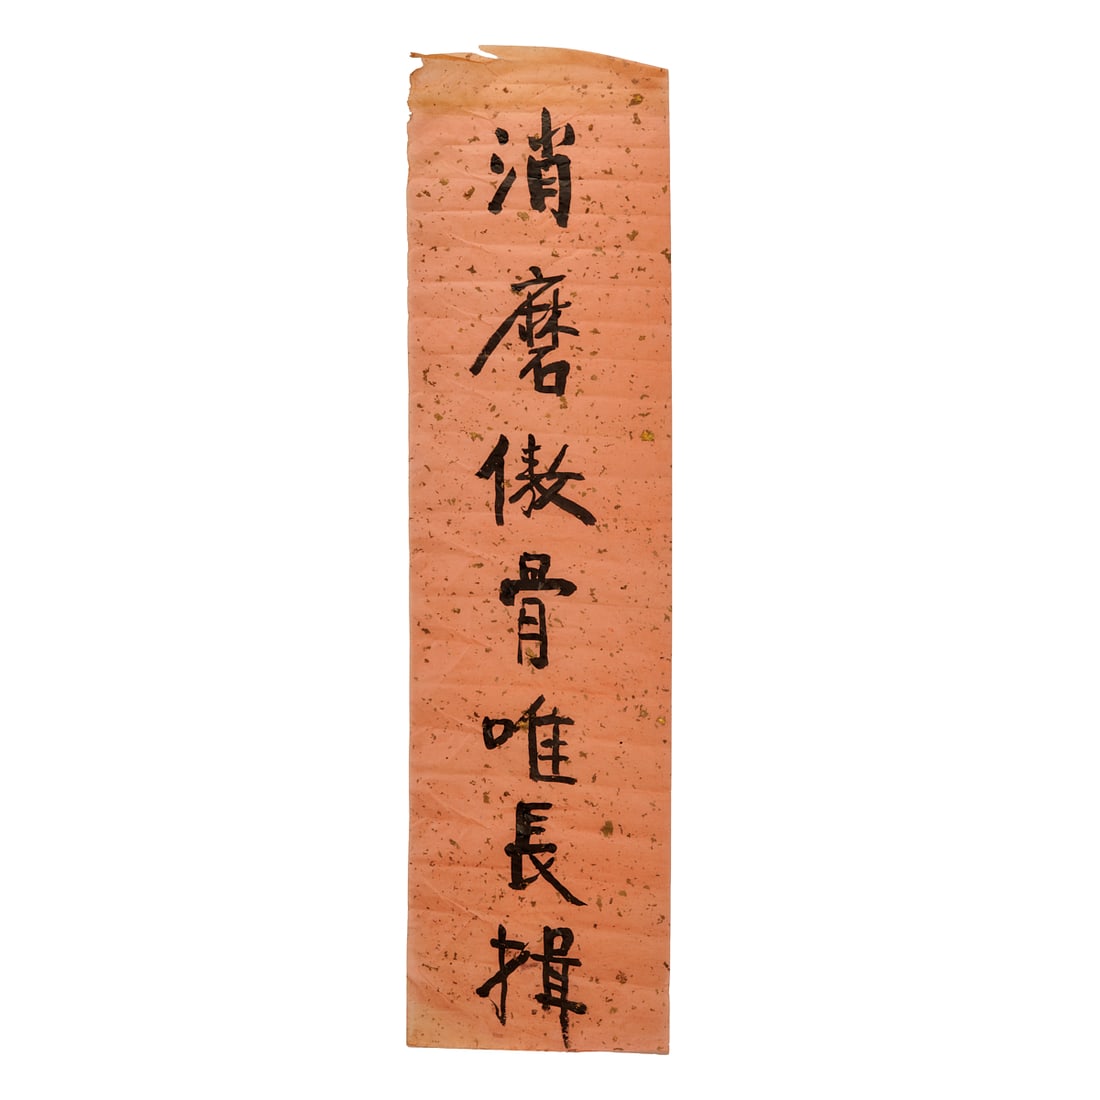 消磨傲骨唯長揖